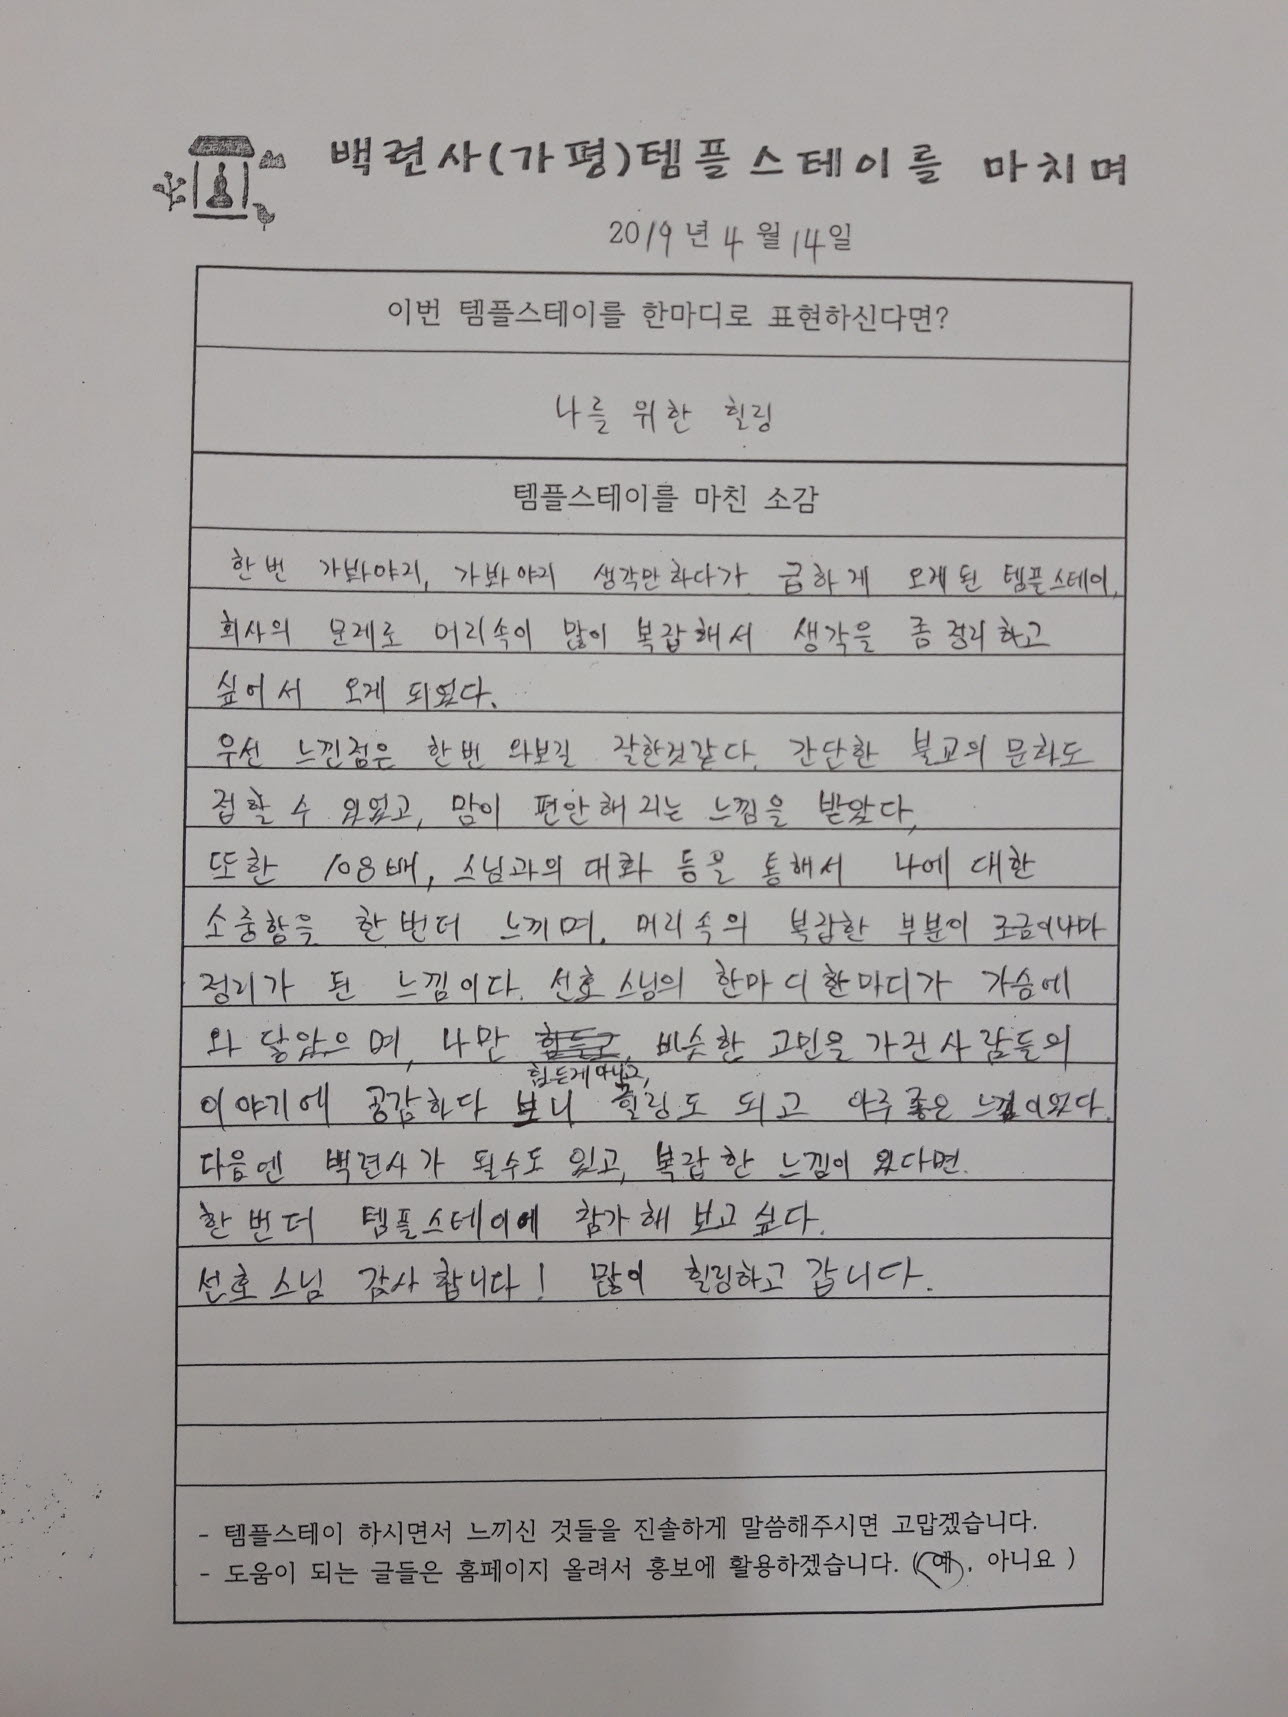 백련사(가평)템플스테이를 마치며
2019년 4월 14일
이번 템플스테이를 한마디로 표현하신다면?
나를 위한 힐링
템플스테이를 마친 소감
한번 가봐야지, 가봐야지 생각만하다가 급하게 오게된 템플스테이,
회사의 문제로 머리속이 많이 복잡해서 생각을 좀 정리하고
싶어서 오게 되었다.
우선 느낀점은 한번 와보길 잘한것같다. 간단한 불교의 문화도
접할 수 있었고, 맘이 편안해 지는 느낌을 받았다.
또한 108배, 스님과의 대화 등을 통해서 나에 대한
소중함을 한번더 느끼며, 머리속의 복잡한 부분이 조금이나마
정리가 된 느낌이다. 선호 스님의 한마디한마디가 가슴에
와 닿았으며, 나만 힘들고, 비슷한 고민을 가진사람들의
힘든게 아니고,
이야기에 공감하다 보니 힐링도 되고 아주 좋은 느낌이었다.
다음엔 백련사가 될수도 있고, 복잡한 느낌이 있다면.
한번더 템플스테이에 참가해 보고 싶다.
선호 스님 감사합니다! 많이 힐링하고 갑니다.
- 템플스테이 하시면서 느끼신 것들을 진솔하게 말씀해주시면 고맙겠습니다.
- 도움이 되는 글들은 홈페이지 올려서 홍보에 활용하겠습니다. (예, 아니요 )